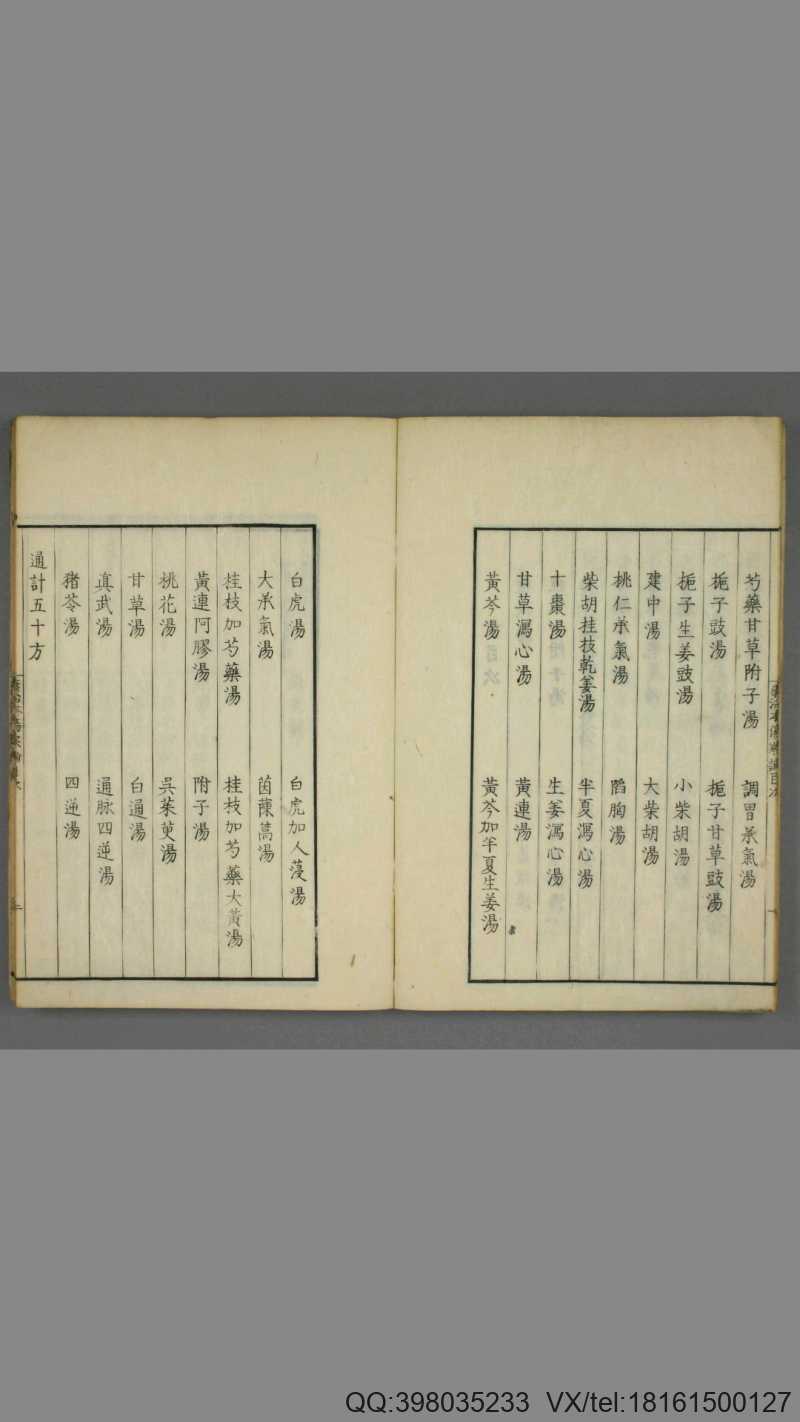 芍藥甘草附子湯　調胃承氣湯
梔子豉湯　梔子甘草豉湯
梔子生姜豉湯　小柴胡湯
建中湯　大柴胡湯
桃仁承氣湯　陷胸湯
柴胡桂枝乾姜湯　半夏瀉心湯
十棗湯　生姜瀉心湯
甘草瀉心湯　黃連湯
黃芩湯　黃芩加半夏生姜湯
白虎湯　白虎加人薓湯
大承氣湯　茵蔯蒿湯
桂枝加芍藥湯　桂枝加芍藥大黃湯
黃連阿膠湯　附子湯
桃花湯　吳茱萸湯
甘草湯　白通湯
真武湯　通脉四逆湯
豬苓湯　四逆湯
通計五十方
QQ:398035233 VX/tel:18161500127